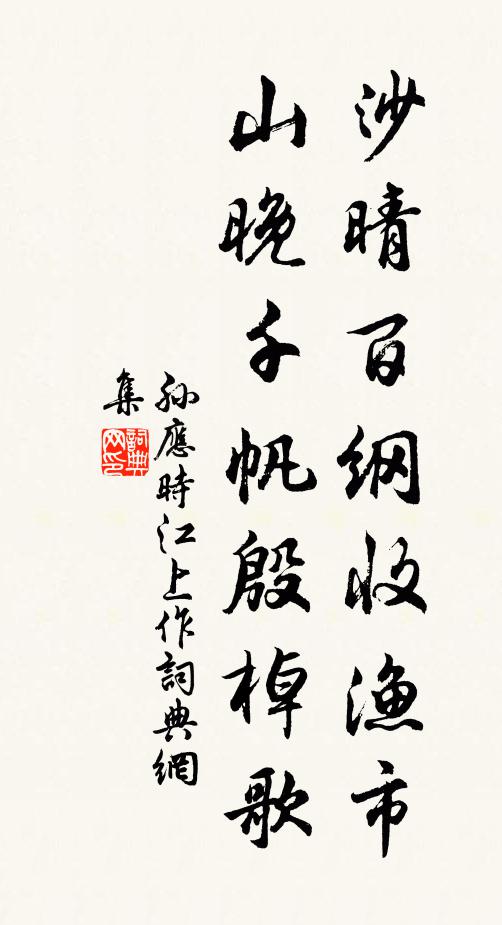 沙晴百網收漁市
山晚千帆殷棹歌
孫應時江上作詞典網
集
詞典
网印